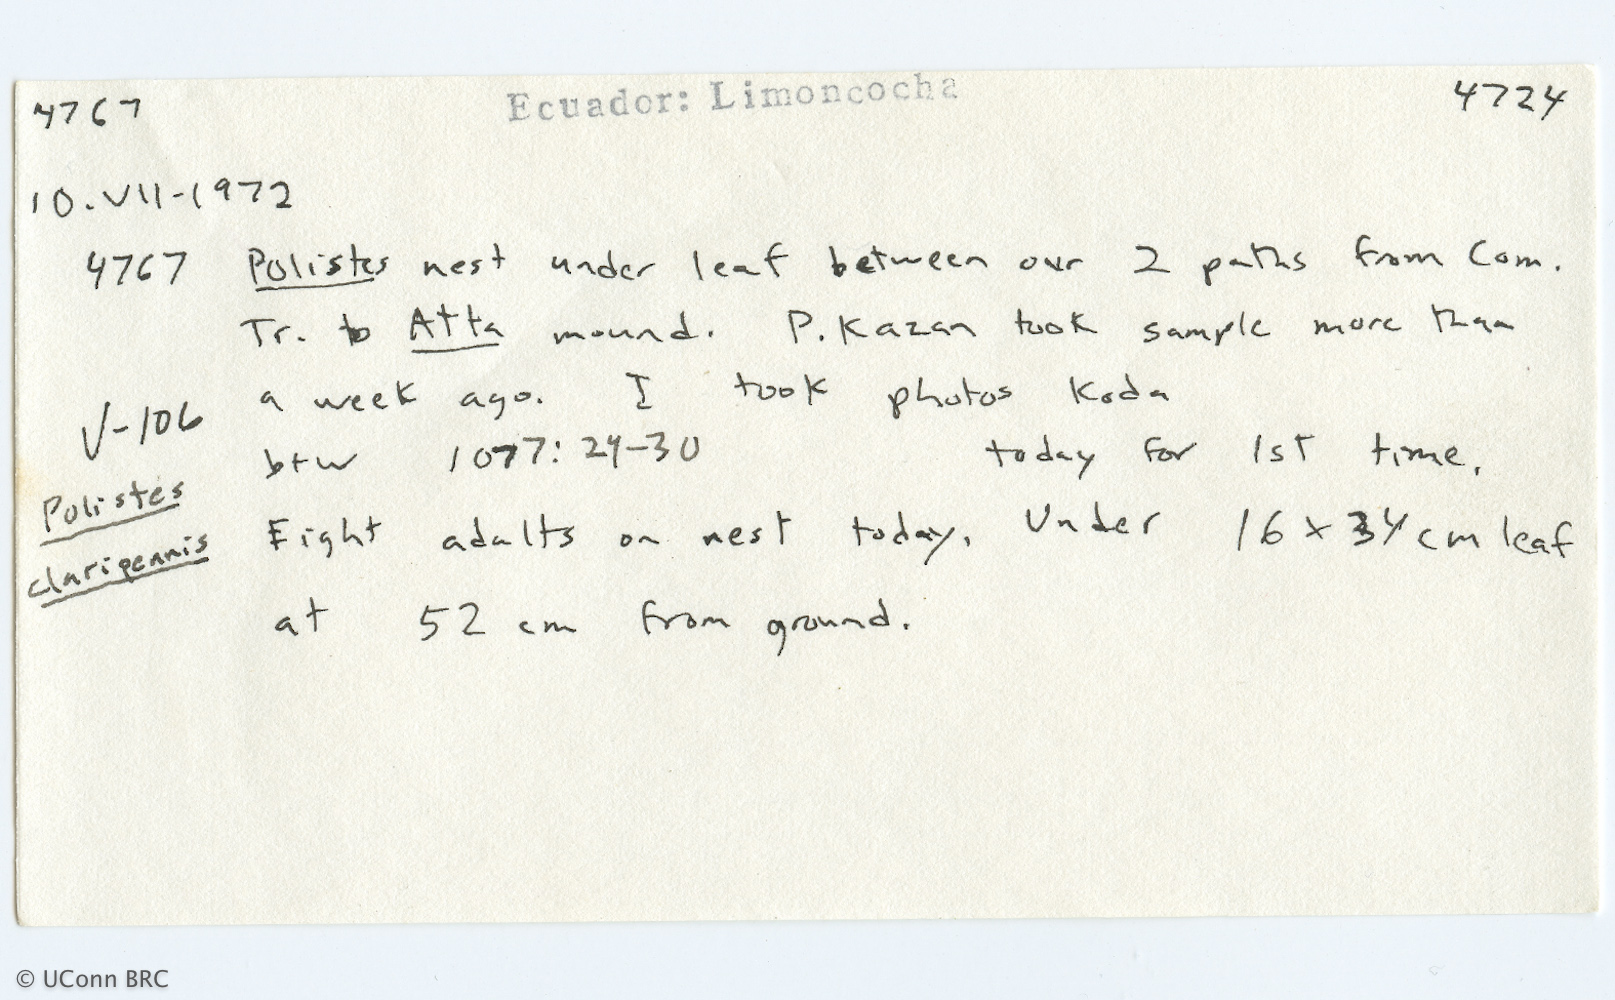 4767 Ecuador: Limoncocha 4724
10.VII-1972
4767 Polistes nest under leaf between our 2 paths from Com.
Tr. to Atta mound. P. Kazan took sample more than
a week ago. I took photos Koda
V-106
b+w 1077: 24-30 today for 1st time.
Polistes
claripennis
Eight adults on nest today. Under 16 x 34 cm leaf
at 52 cm from ground.
© UConn BRC